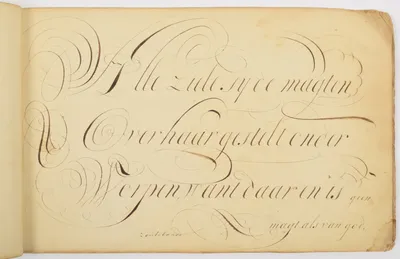 Alle ziele sy de magten
Over haar gestelt onder
Worpen want daar en is geen
magt als van god.